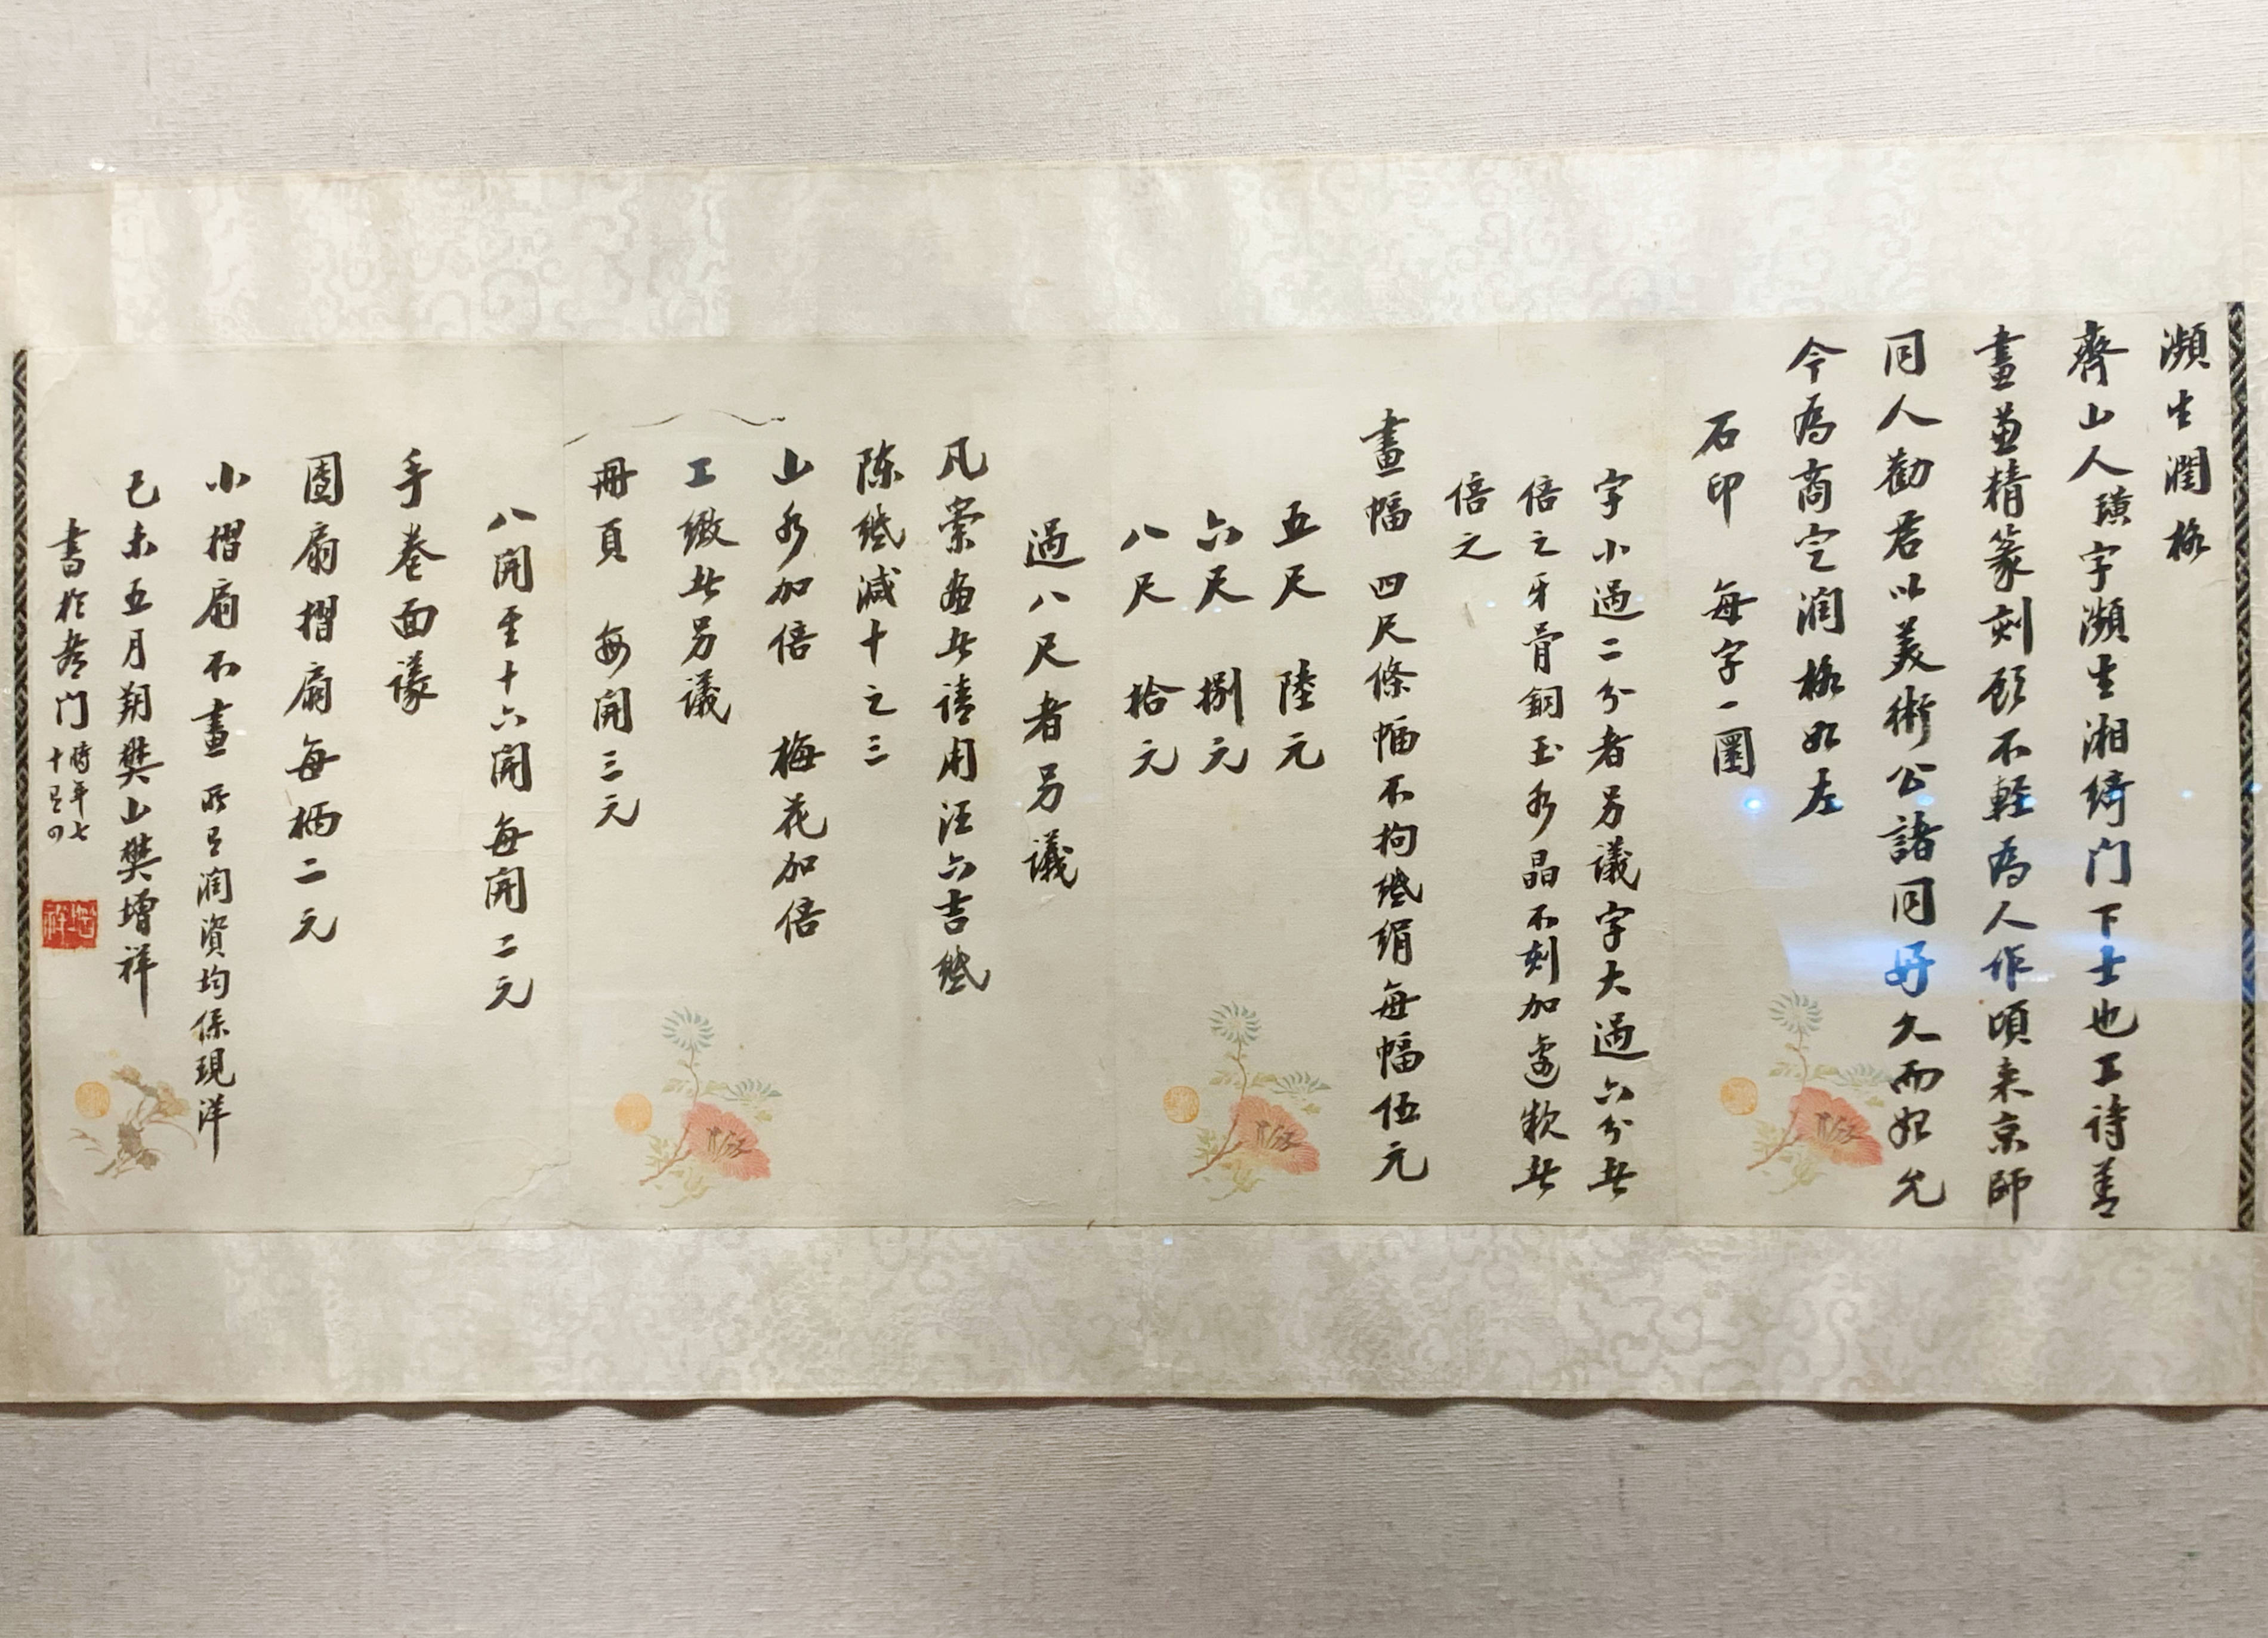 瀕生潤格
齊山人璜字瀕生湘綺门下士也工诗善
畫兼精篆刻顧不輕為人作頃来京師
同人勸君以美術公諸同好久而始允
今為商定润格如左
石印 每字一圜
字小過二分者另議字大過六分者
倍之牙骨銅玉水晶不刻加邊款者
倍之
畫幅 四尺條幅不拘紙绢每幅伍元
五尺 陸元
六尺 捌元
八尺 拾元
過八尺者另議
凡索畫者請用汪六吉紙
陈紙減十之三
山水加倍 梅花加倍
工緻者另議
册頁 每開三元
八開至十六開每開二元
手卷面議
團扇摺扇每柄二元
小摺扇不畫 所有润資均係現洋
己未五月朔樊山樊增祥
書於都门時年七
十有四